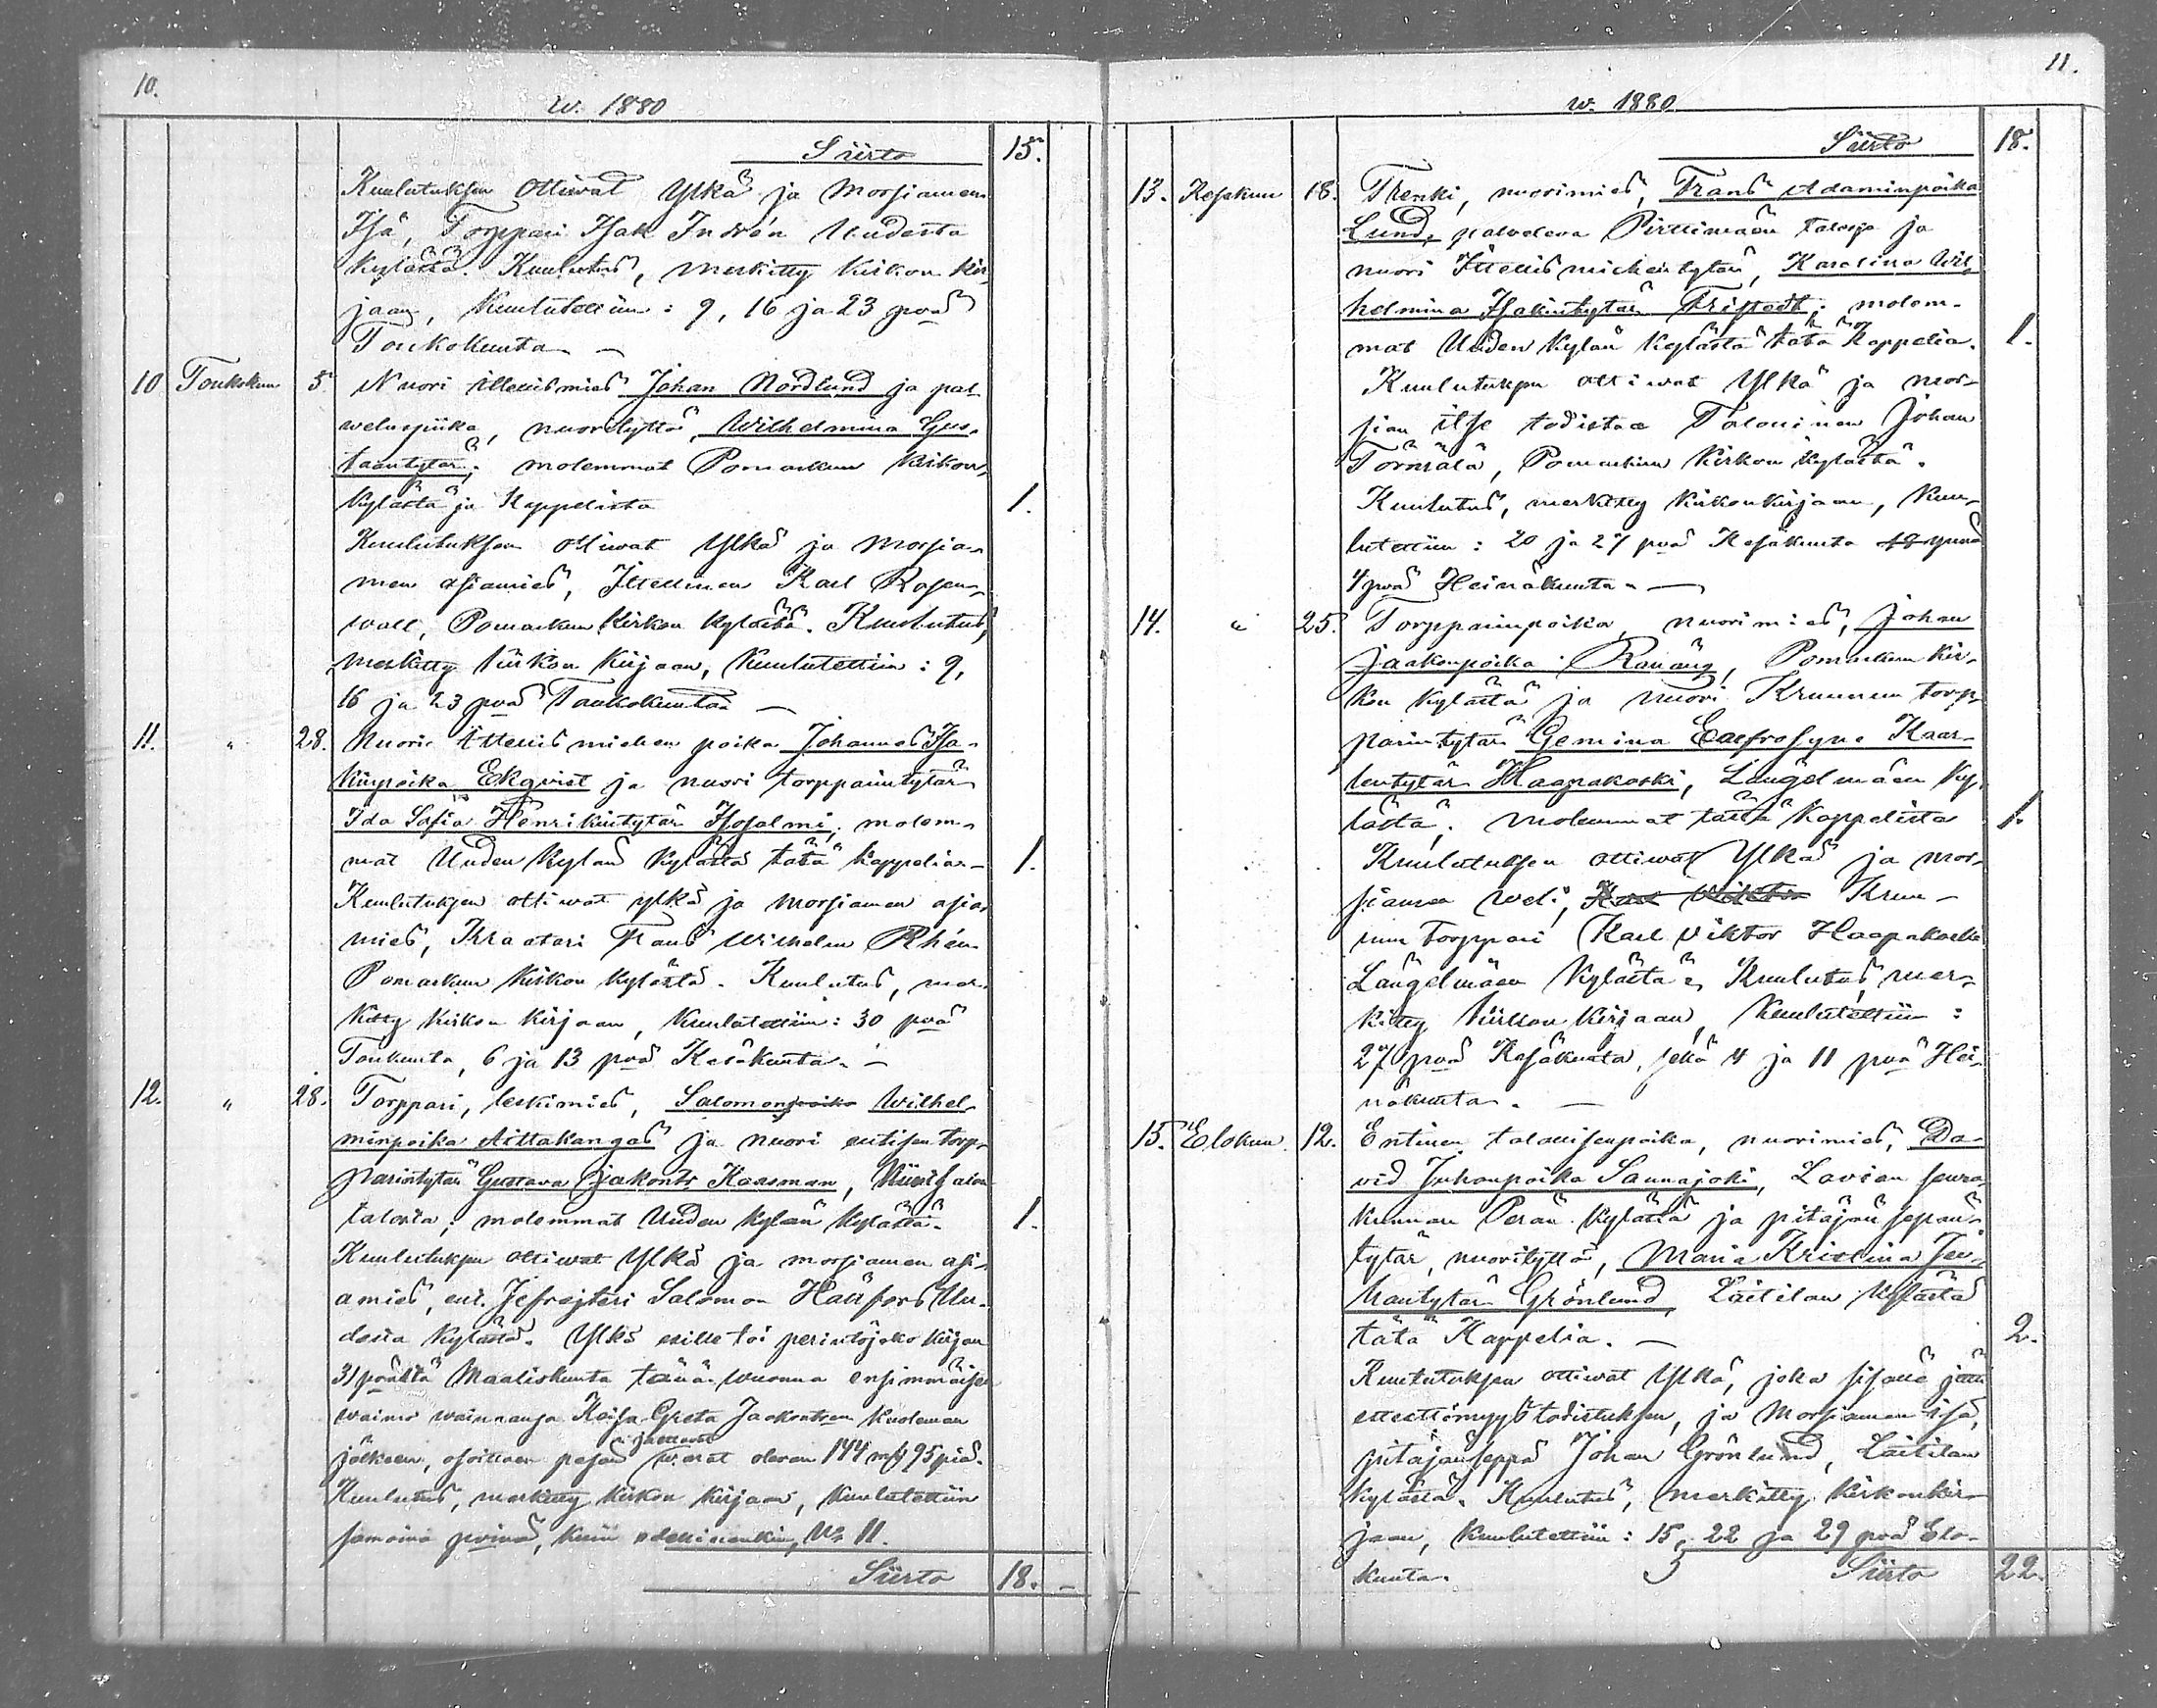 10.
w. 1880
Siirto 15.
Kuulutuksen ottiwat Ylkä ja Morsiamen
Isä, Torppari Isak Indrén Uudesta
kylästä. Kuulutus, merkitty kirkon kir-
jaan, Kuulutettiin: 9, 16 ja 23 pnä
Toukokuuta. —
10 Toukokuun 5. Nuori itellismies Johan Nordlund ja pal-
veluspiika, nuorityttö, Wilhelmina Gus-
taantytär; molemmat Pomarkun Kirkon
kylästä ja Kappelista 1.
Kuulutuksen ottiwat Ylkä ja Morsia-
men asiamies, Itellinen Karl Rosen-
wall, Pomarkun Kirkon kylästä. Kuulutus,
merkitty kirkon kirjaan, Kuulutettiin: 9,
16 ja 23 pnä Toukokuuta —
11. " 28. Nuori Itellismiehen poika Johannes Isa-
kinpoika Ekqvist ja nuori torpparintytär
Ida Sofia Henrikintytär Isosalmi; molem-
mat Uuden Kylän kylästä tätä kappelia. 1.
Kuulutuksen ottiwat ylkä ja morsiamen asia-
mies, Kraatari Frans Wilhelm Rhén
Pomarkun Kirkon kylästä. Kuulutus, mer-
kitty kirkon kirjaan, Kuulutettiin: 30 pnä
Toukuuta, 6 ja 13 pnä Kesäkuuta. —
12. " 28. Torppari, leskimies, Salomonpoika Wilhel-
minpoika Aittakangas ja nuori entisen torp-
parintytär Gustava Jakontr Kaasman,
talosta; molemmat Uuden kylän kylästä. 1.
Kuulutuksen ottiwat Ylkä ja morsiamen asi-
amies, ent. Jefrejteri Salomon Hällfors Uu-
desta kylästä. Ylkä esille toi perintöjako kirjan
31 päältä Maaliskuuta tänä wuonna ensimmäisen
waimo wainaansa Kaisa Greta Jaakontr. kuoleman
jälkeen, osoittaen pesän jättämät warat olevan 144 mk 95 piä.
Kuulutus, merkitty kirkon kirjaan, kuulutettiin
samoina pninä, kuin edellisenkin, No 11.
Siirto 18. —
11.
w. 1880
Siirto 18.
13. Kesäkuun 18. Trenki, nuorimies, Frans Adaminpoika
Lund, palveleva Pirttimäen talosja ja
nuori Itellismiehentytär, Karolina Wil-
helmina Isakintytär Fristedt; molem-
mat Uuden kylän kylästä tätä Kappelia. 1.
Kuulutuksen ottiwat Ylkä ja mor-
sian itse todistaa Talonnen Johan
Törnälä, Pomarkun Kirkon kylästä.
Kuulutus, merkitty kirkonkirjaan, Kuu-
lutettiin: 20 ja 27 pnä Kesäkuuta
4 pnä Heinäkuuta. —
14. " 25. Torpparinpoika, nuorimies, Johan
Jaakonpoika Ranäng, Pomarkun Kir-
kon kylästä ja nuori Kruunun torp-
parintytär Gemina Eaefrosyne Kaar-
lentytär Haapakoski, Längelmäen ky-
lästä; molemmat tästä Kappelista 1.
Kuulutuksen ottiwat Ylkä ja mor-
siamen weli, Karl Viktor Kruu-
nun torppari Karl Viktor Haapakoski
Längelmäen kylästä; Kuulutus, mer-
kitty kirkon kirjaan, Kuulutettiin:
27 pnä Kesäkuuta, sekä 4 ja 11 pnä Hei-
näkuuta. —
15. Elokuun 12. Entinen talonisenpoika, nuorimies, Da-
vid Juhanpoika Saunajoki, Lavian seura-
kunnan Perän kylästä ja pitäjän sepän-
tytär, nuorityttö, Maria Kristina Ju-
hantytär Grönlund, Laitilan kylästä
tätä Kappelia. — 2.
Kuulutuksen ottiwat Ylkä, joka sisälle jätti
esteettömyystodistuksen, ja Morsiamen isä,
pitäjänseppä Johan Grönlund, Laitilan
kylästä. Kuulutus, merkitty kirkonkir-
jaan, Kuulutettiin: 15, 22 ja 29 pnä Elo-
kuuta. Siirto 22.